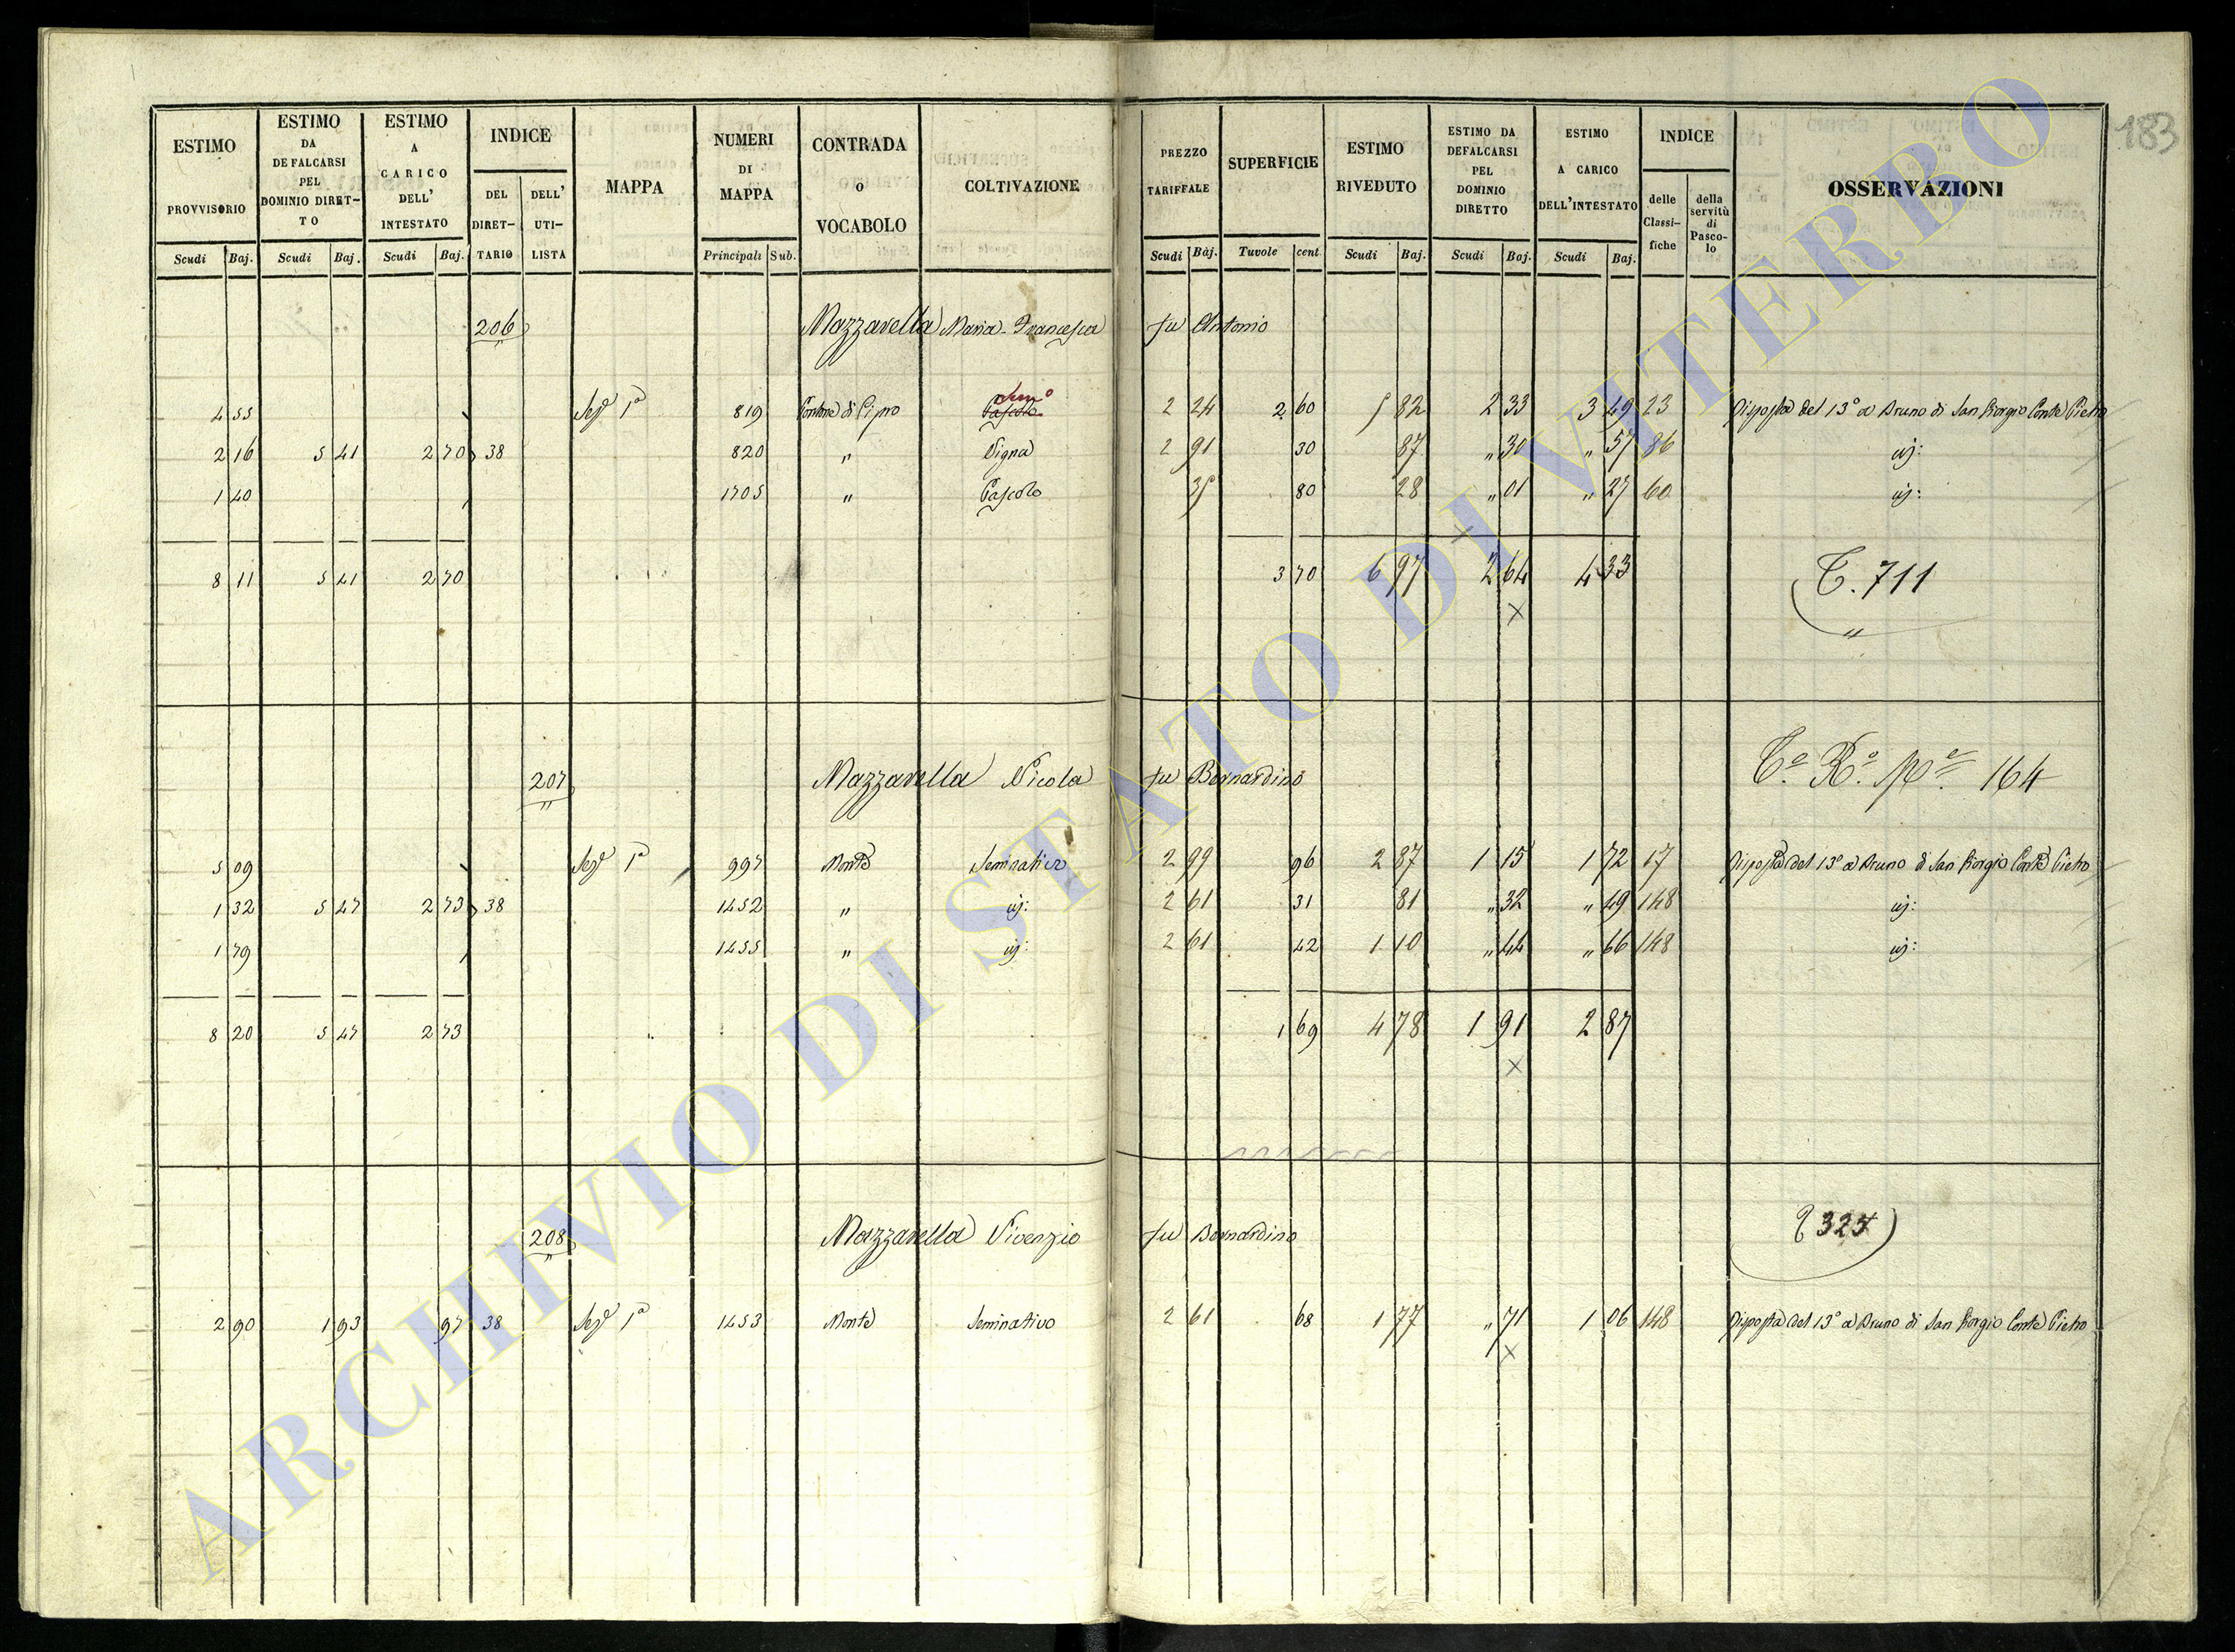 183
ESTIMO PROVVISORIO Scudi Baj.
ESTIMO DA DEFALCARSI PEL DOMINIO DIRETTO Scudi Baj.
ESTIMO A CARICO DELL' INTESTATO Scudi Baj.
INDICE DEL DIRETTARIO DELL' UTILISTA
MAPPA
NUMERI DI MAPPA Principali Sub.
CONTRADA O VOCABOLO
COLTIVAZIONE
PREZZO TARIFFALE Scudi Baj.
SUPERFICIE Tavole cent
ESTIMO RIVEDUTO Scudi Baj.
ESTIMO DA DEFALCARSI PEL DOMINIO DIRETTO Scudi Baj.
ESTIMO A CARICO DELL'INTESTATO Scudi Baj.
INDICE delle Classifiche della servitù di Pascolo
OSSERVAZIONI
206 Mazzarella Maria Francesca fu Antonio
4 55 Sez.e 1a 819 di Cipro Pascolo Sem.o 2 24 2 60 5 82 2 33 3 49 23 Risposta del 13° a Bruno di San Giorgio Conte Pietro
2 16 5 41 2 70 38 820 " Vigna 2 91 30 87 " 30 " 57 86 id:
1 40 1705 " Pascolo 35 80 28 " 01 " 27 60 id:
8 11 5 41 2 70 3 70 6 97 2 64 4 33
T. 711
207 Mazzarella Nicola fu Bernardino 164
5 09 Sez.e 1a 997 Monte Seminativo 2 99 96 2 87 1 15 1 72 17 Risposta del 13° a Bruno di San Giorgio Conte Pietro
1 32 5 47 2 73 38 1452 " id: 2 61 31 81 " 32 " 49 148 id:
1 79 1455 " id: 2 61 42 1 10 " 44 " 66 148 id:
8 20 5 47 2 73 1 69 4 78 1 91 2 87
208 Mazzarella Vivenzio fu Bernardino
2 90 1 93 97 38 Sez.e 1a 1453 Monte Seminativo 2 61 68 1 77 " 71 1 06 148 Risposta del 13° a Bruno di San Giorgio Conte Pietro
ARCHIVIO DI STATO DI VITERBO